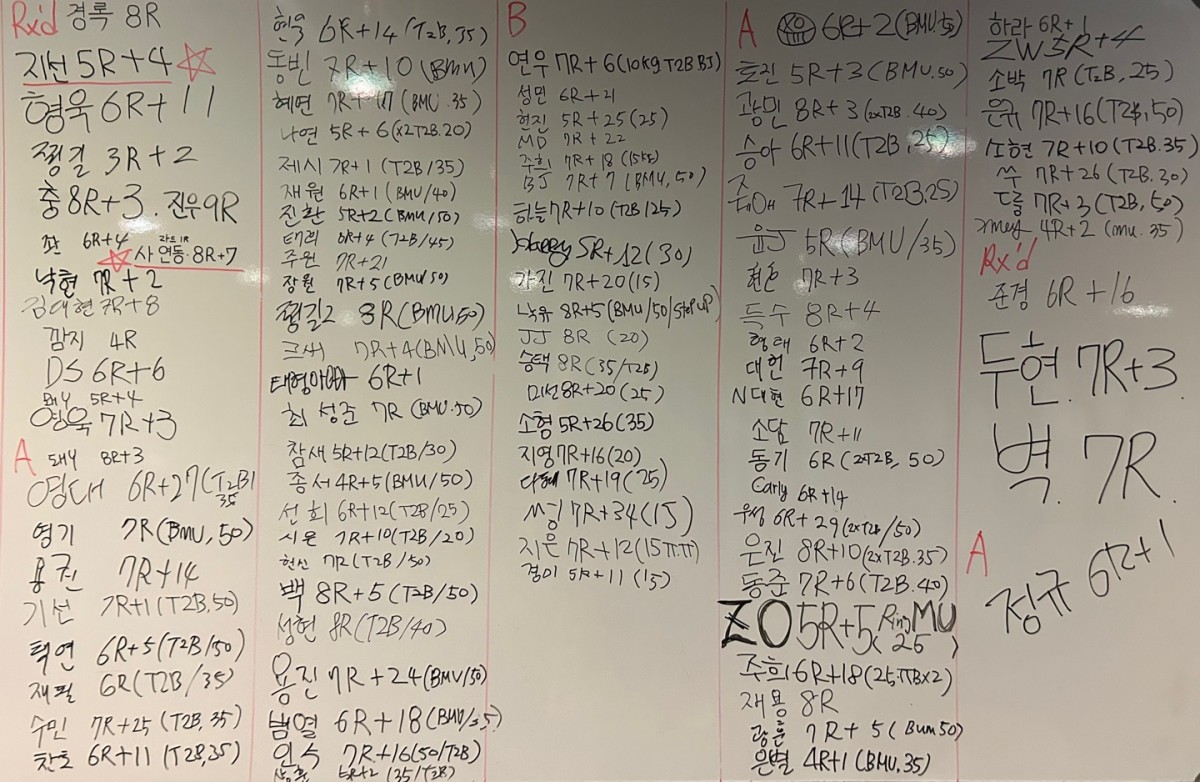 Rx'd 경록 8R
지선 5R+4
형욱 6R+11
찡길 3R+2
충 8R+3. 진우 9R
좌 6R+4
사 연동. 8R+7
낙현 7R+2
김대현 7R+8
깜지 4R
DS 6R+6
돼니 5R+4
영욱 7R+3
A 돼니 8R+3
영대 6R+27(T2B/35
영기 7R(BMU, 50)
용진 7R+14
기선 7R+1(T2B.50)
탁연 6R+5(T2B/50)
재필 6R(T2B/35)
수민 7R+25 (T2B, 35)
찬호 6R+11 (T2B,35)
현욱 6R+14 (T2B, 35)
동빈 7R+10 (BMU)
혜면 7R+17 (BMU.35)
나연 5R+6 (x2T2B.20)
제시 7R+1 (T2B/35)
재원 6R+1 (BMU/40)
진환 5R+2 (BMU/50)
태리 6R+4 (T2B/45)
주원 7R+21
장원 7R+5 (BMU 50)
찡길2 8R(BMU 50)
크씨 7R+4(BMU,50)
6R+1
최성준 7R (BMU.50)
참새 5R+12(T2B/30)
종서 4R+5(BMU/50)
선희 6R+12(T2B/25)
시은 7R+10(T2B/20)
현신 7R(T2B/50)
백 8R+5(T2B/50)
성현 8R(T2B/40)
용진 7R+24(BMU/50)
범열 6R+18(BMU/35)
인수 7R+16(50/T2B)
5R+2 (35/T2B)
B
연우 7R+6(10kg T2B BJ)
성민 6R+21
현진 5R+25(25)
MD 7R+22
주희 7R+18 (15kg)
BJ 7R+7 (BMU, 50)
하늘 7R+10 (T2B/25)
5R+12(30)
가진 7R+20(15)
낙유 8R+5(BMU/50/Step up)
JJ 8R (20)
승택 8R(35/T2B)
미선 8R+20(25)
소형 5R+26(35)
지영 7R+16(20)
다혜 7R+19(25)
써니 7R+34(15)
지은 7R+12(15π.π)
경이 5R+11(15)
A 6R+2(BMU.50)
효진 5R+3(BMU.50)
광민 8R+3 (2xT2B.40)
승아 6R+11(T2B,25)
7R+14 (T2B,25)
윤J 5R(BMU/35)
7R+3
득수 8R+4
형태 6R+2
대헌 7R+9
N대현 6R+17
소담 7R+11
동기 6R(2xT2B, 50)
Carly 6R+14
우성 6R+29(2xT2B/50)
은진 8R+10(2xT2B.35)
동준 7R+6(T2B.40)
ZO 5R+5(Ring MU 25)
주희 6R+18(25.πBx2)
재용 8R
광훈 7R+5 (Bum50)
은별 4R+1 (BMU.35)
하라 6R+1
ZW 3R+4
소박 7R (T2B, 25)
은규 7R+16(T2B,50)
소현 7R+10 (T2B.35)
쑤 7R+26 (T2B.30)
두릅 7R+3 (T2B, 50)
4R+2 (mu.35)
Rx'd
준경 6R+16
두현. 7R+3
벽. 7R.
A
정규 6R+1